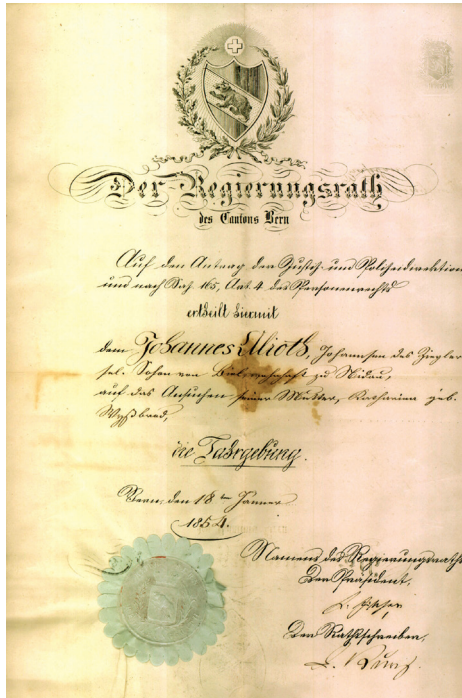 Der Regierungsrath
des Cantons Bern
Auf den Antrag der Justiz- und Polizeidirektion
und nach Satz 165, Art. 4 des Personenrechts
ertheilt hiermit
dem Johannes Allioth, Johannsen des Ziegler
sel. Sohn von zu Nidau,
auf das Ansuchen seiner Mutter, Katharina geb.
die Jahrgebung.
Bern, den 18ten Jänner
1854.
Namens des Regierungsraths
Der Präsident,
Der Rathsschreiber,